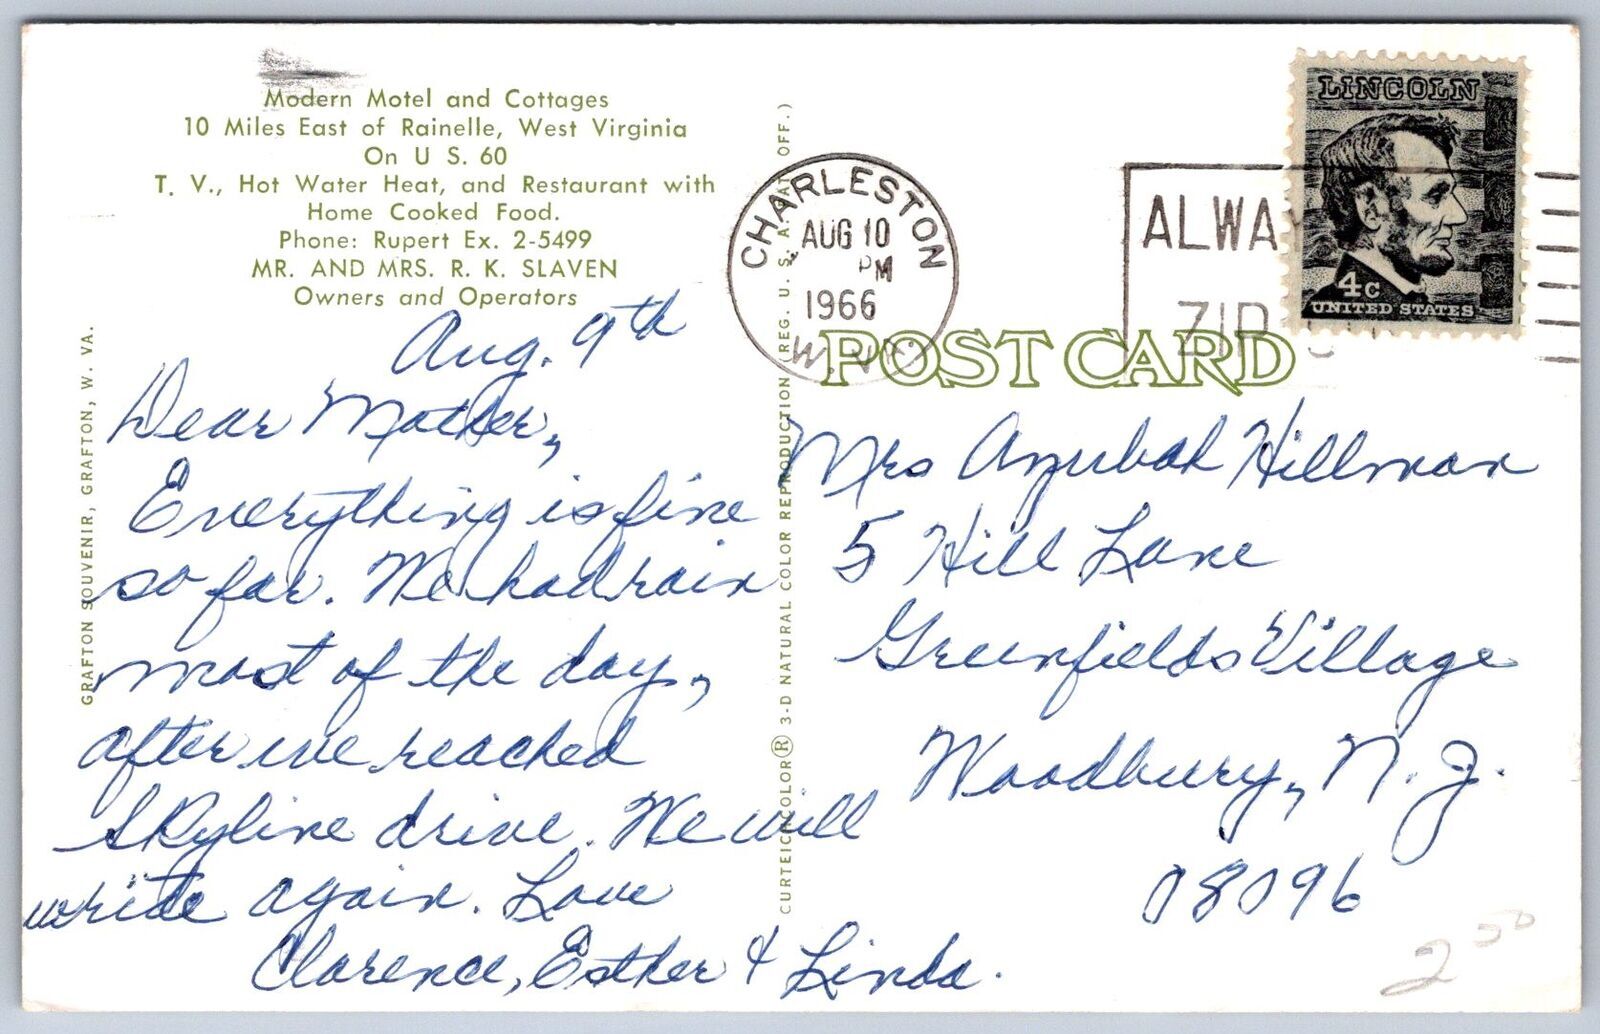 Modern Motel and Cottages
10 Miles East of Rainelle, West Virginia
On U S. 60
T. V., Hot Water Heat, and Restaurant with
Home Cooked Food.
Phone: Rupert Ex. 2-5499
MR. AND MRS. R. K. SLAVEN
Owners and Operators
GRAFTON SOUVENIR, GRAFTON, W. VA.
Aug. 9th
Dear Mother,
Everything is fine
so far. We had rain
most of the day,
after we reached
Skyline drive. We will
write again. Love
Clarence, Esther & Linda.
CURTEICHCOLOR® 3-D NATURAL COLOR REPRODUCTION (REG. U. S. A. PAT. OFF.)
CHARLESTON
AUG 10
PM
1966
W. VA.
ALWA
ZIP
LINCOLN
4c
UNITED STATES
POST CARD
Mrs Azubah Hillman
5 Hill Lane
Greenfields Village
Woodbury, N. J.
08096
2.50